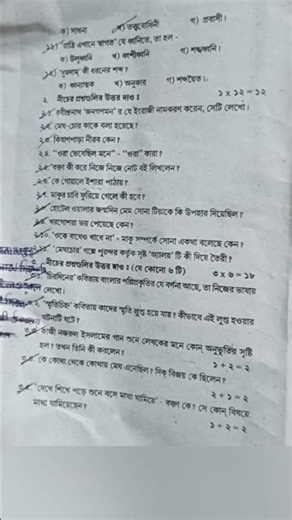 ক) সাধনা খ) তত্ত্ববোধিনী গ) প্রবাসী।
১১) 'রাত্রি এখানে স্বাগত' যে ধ্বনিতে, তা হল -
ক) উলুধ্বনি খ) বংশীধ্বনি গ) শঙ্খধ্বনি।
১২) 'দুমদাম' কী ধরনের শব্দ?
ক) ধ্বন্যাত্মক খ) অনুকার গ) শব্দদ্বৈত।
২. নীচের প্রশ্নগুলির উত্তর দাও : ১ x ১২ = ১২
২.১. রবীন্দ্রনাথ 'জনগণমন' র যে ইংরেজী নামকরণ করেন, সেটি লেখো।
২.২. মেঘ-চোর কাকে বলা হয়েছে?
২.৩. কিষাণপাড়া নীরব কেন?
২.৪. "ওরা ভেবেছিল মনে" - "ওরা" কারা?
২.৫. বক্তা কী করে নিজে নিজে নোট বই লিখলেন?
২.৬. কে গোয়ালে ইশারা পাঠায়?
২.৭. মাকুর চাবি ফুরিয়ে গেলে কী হবে?
২.৮. হোটেল ওয়ালার জন্মদিনে মেম সোনা টিয়াকে কি উপহার দিয়েছিল?
২.৯. খরগোশরা ভয় পেয়েছে কেন?
২.১০. 'ওকে বাঘেও খাবে না' - মাকু সম্পর্কে সোনা একথা বলেছে কেন?
'মেঘচোর' গল্পে পুরন্দর কর্তৃক সৃষ্ট 'অ্যালয়' টি কী দিয়ে তৈরী?
নীচের প্রশ্নগুলির উত্তর দাও : (যে কোনো ৬ টি) ৩ x ৬ = ১৮
'চিরদিনের' কবিতায় বাংলার পল্লিপ্রকৃতির যে বর্ণনা আছে, তা নিজের ভাষায়
লেখো।
'স্মৃতিচিহ্ন' কবিতায় কাদের স্মৃতি লুপ্ত হয়ে যায়? কীভাবে এই লুপ্ত হওয়ার
ঘটনাটি ঘটে?
৩.৩. কাজী নজরুল ইসলামের গান শুনে লেখকের মনে কোন্ অনুভূতির সৃষ্টি
হল? তখন তিনি কী করলেন? ১ + ২ = ২
৩.৪. কে কোথা থেকে কোথায় মেঘ এনেছিল? দিক্ বিজয় কে ছিলেন?
২ + ১ = ২
৩.৫. 'দেখে শিখে পড়ে শুনে বসে মাথা ঘামিয়ে' - বক্তা কে? সে কোন্ বিষয়ে
মাথা ঘামিয়েছেন? ১ + ২ = ২